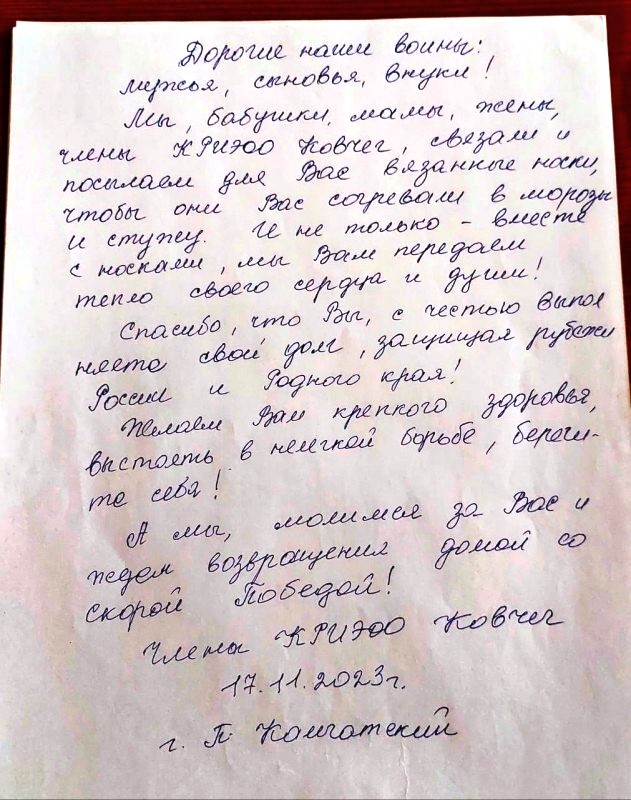 Дорогие наши воины:
мужья, сыновья, внуки!
Мы, бабушки, мамы, жены,
члены КРИЭОО Ковчег, связали и
посылаем для Вас вязанные носки,
чтобы они Вас согревали в морозы
и стужу. И не только - вместе
с носками, мы Вам передаем
тепло своего сердца и души!
Спасибо, что Вы, с честью выпол
няете свой долг, защищая рубежи
России и Родного края!
Желаем Вам крепкого здоровья,
выстоять в нелегкой борьбе, береги-
те себя!
А мы, молимся за Вас и
ждем возвращения домой со
скорой Победой!
Члены КРИЭОО Ковчег
17.11.2023г.
г. П. Камчатский